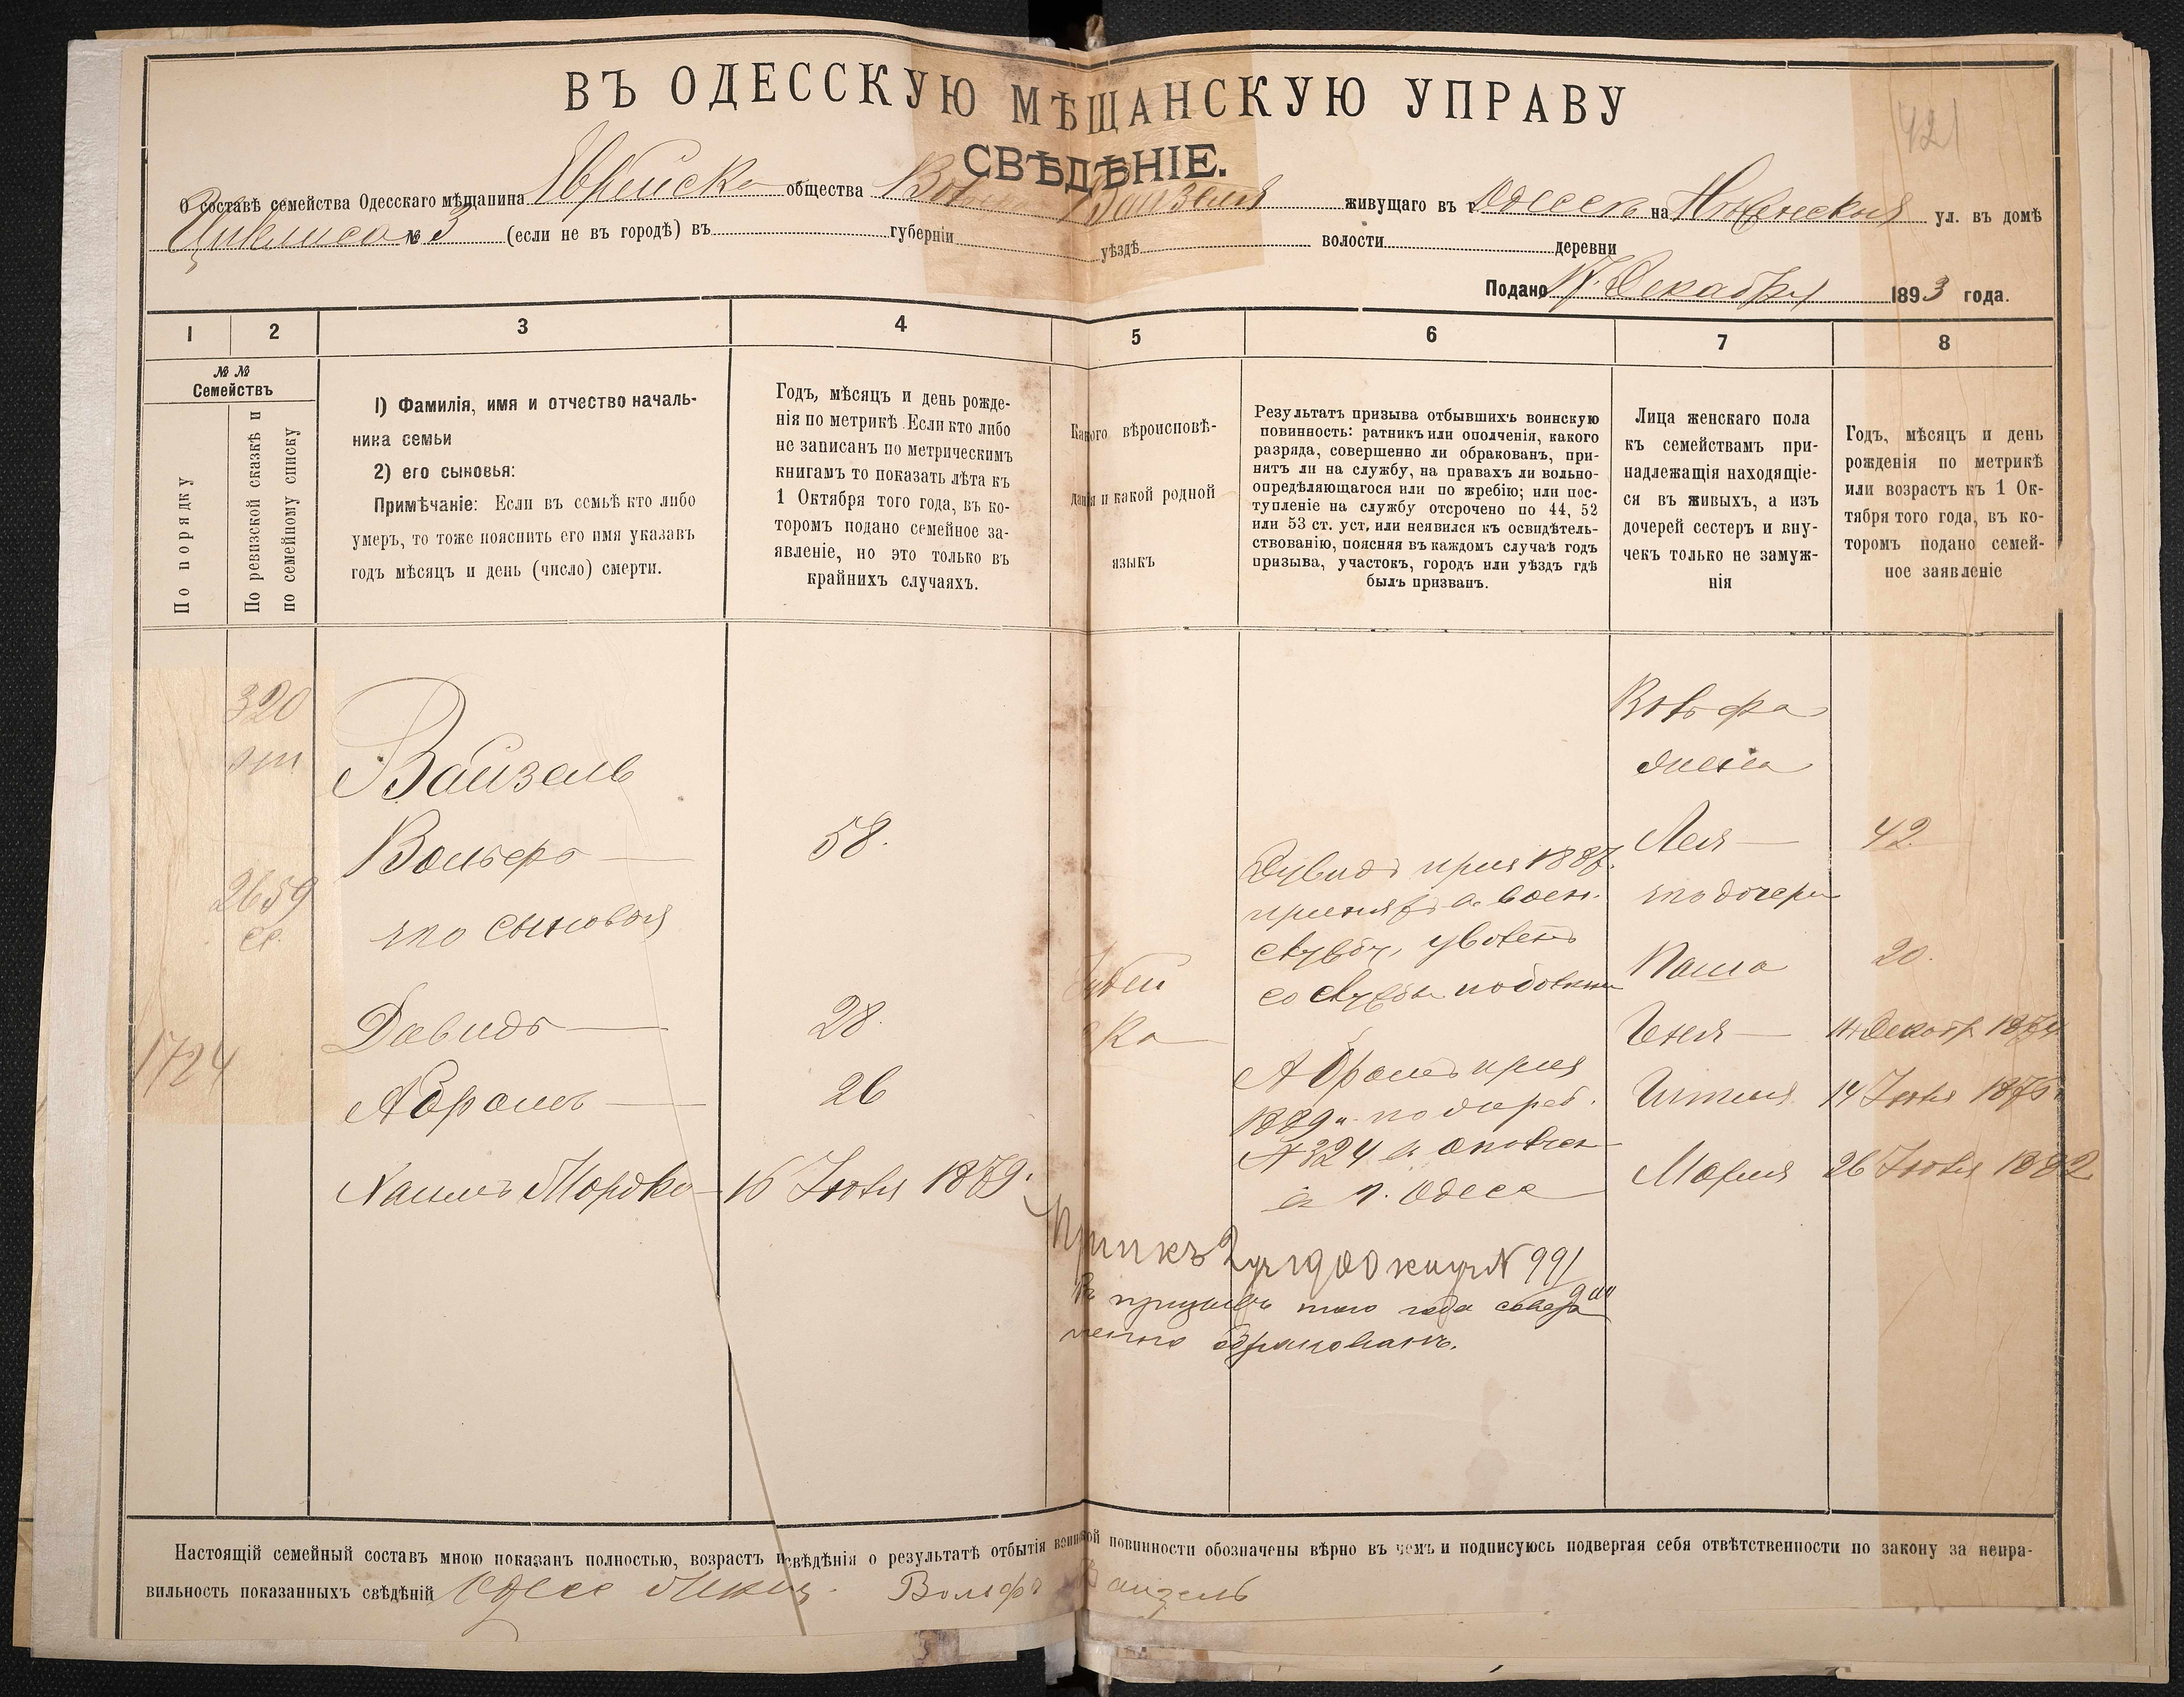 421
ВЪ ОДЕССКУЮ МѢЩАНСКУЮ УПРАВУ
СВѢДѢНІЕ.
О составѣ семейства Одесскаго мѣщанина Еврейска общества Вольфа Вайзеля живущаго въ г Одессѣ на Нѣженской ул. въ домѣ
№ 3 (если не въ городѣ) въ губерніи уѣздѣ волости деревни
Подано 17 Декабря 1893 года.
1 2 3 4 5 6 7 8
№ №
Семействъ
По порядку
По ревизской сказкѣ и
по семейному списку
1) Фамилія, имя и отчество началь-
ника семьи
2) его сыновья:
Примѣчаніе: Если въ семьѣ кто либо
умеръ, то тоже пояснить его имя указавъ
годъ мѣсяцъ и день (число) смерти.
Годъ, мѣсяцъ и день рожде-
нія по метрикѣ. Если кто либо
не записанъ по метрическимъ
книгамъ то показать лѣта къ
1 Октября того года, въ ко-
торомъ подано семейное за-
явленіе, но это только въ
крайнихъ случаяхъ.
Какого вѣроисповѣ-
данія и какой родной
языкъ
Результатъ призыва отбывшихъ воинскую
повинность: ратникъ или ополченія, какого
разряда, совершенно ли обракованъ, при-
нятъ ли на службу, на правахъ ли вольно-
опредѣляющагося или по жребію; или пос-
тупленіе на службу отсрочено по 44, 52
или 53 ст. уст, или неявился къ освидѣтель-
ствованію, поясняя въ каждомъ случаѣ годъ
призыва, участокъ, городъ или уѣздъ гдѣ
былъ призванъ.
Лица женскаго пола
къ семействамъ при-
надлежащія находящіе-
ся въ живыхъ, а изъ
дочерей сестеръ и вну-
чекъ только не замуж-
нія
Годъ, мѣсяцъ и день
рожденія по метрикѣ
или возрастъ къ 1 Ок-
тября того года, въ ко-
торомъ подано семей-
ное заявленіе
320
2659
1724
Вайзель
Вольфъ — 58.
его сыновья
Давидъ — 28.
Абрамъ — 26
Хаимъ Мордко — 16 Іюля 1879.
Іудей
ска
Дувидъ приз 1887.
принятъ в. воен.
службу, уволенъ
со службы по болезни
Абрамъ приз
1889 г. по жереб.
№ 324 в ополчен
в г. Одесса
Вольфа
жена
Лея — 42.
его дочери
Паша 20.
Геня — 14 Декабр 1874
14 Іюля 1876
Марія 26 Іюля 1882
1900 № 991
Въ призывъ того года совер
шенно обракованъ.
Настоящій семейный составъ мною показанъ полностью, возрастъ и свѣдѣнія о результатѣ отбытія воинской повинности обозначены вѣрно въ чемъ и подписуюсь подвергая себя отвѣтственности по закону за непра-
вильность показанныхъ свѣдѣній Одес Мещ. Вольфъ Вайзель